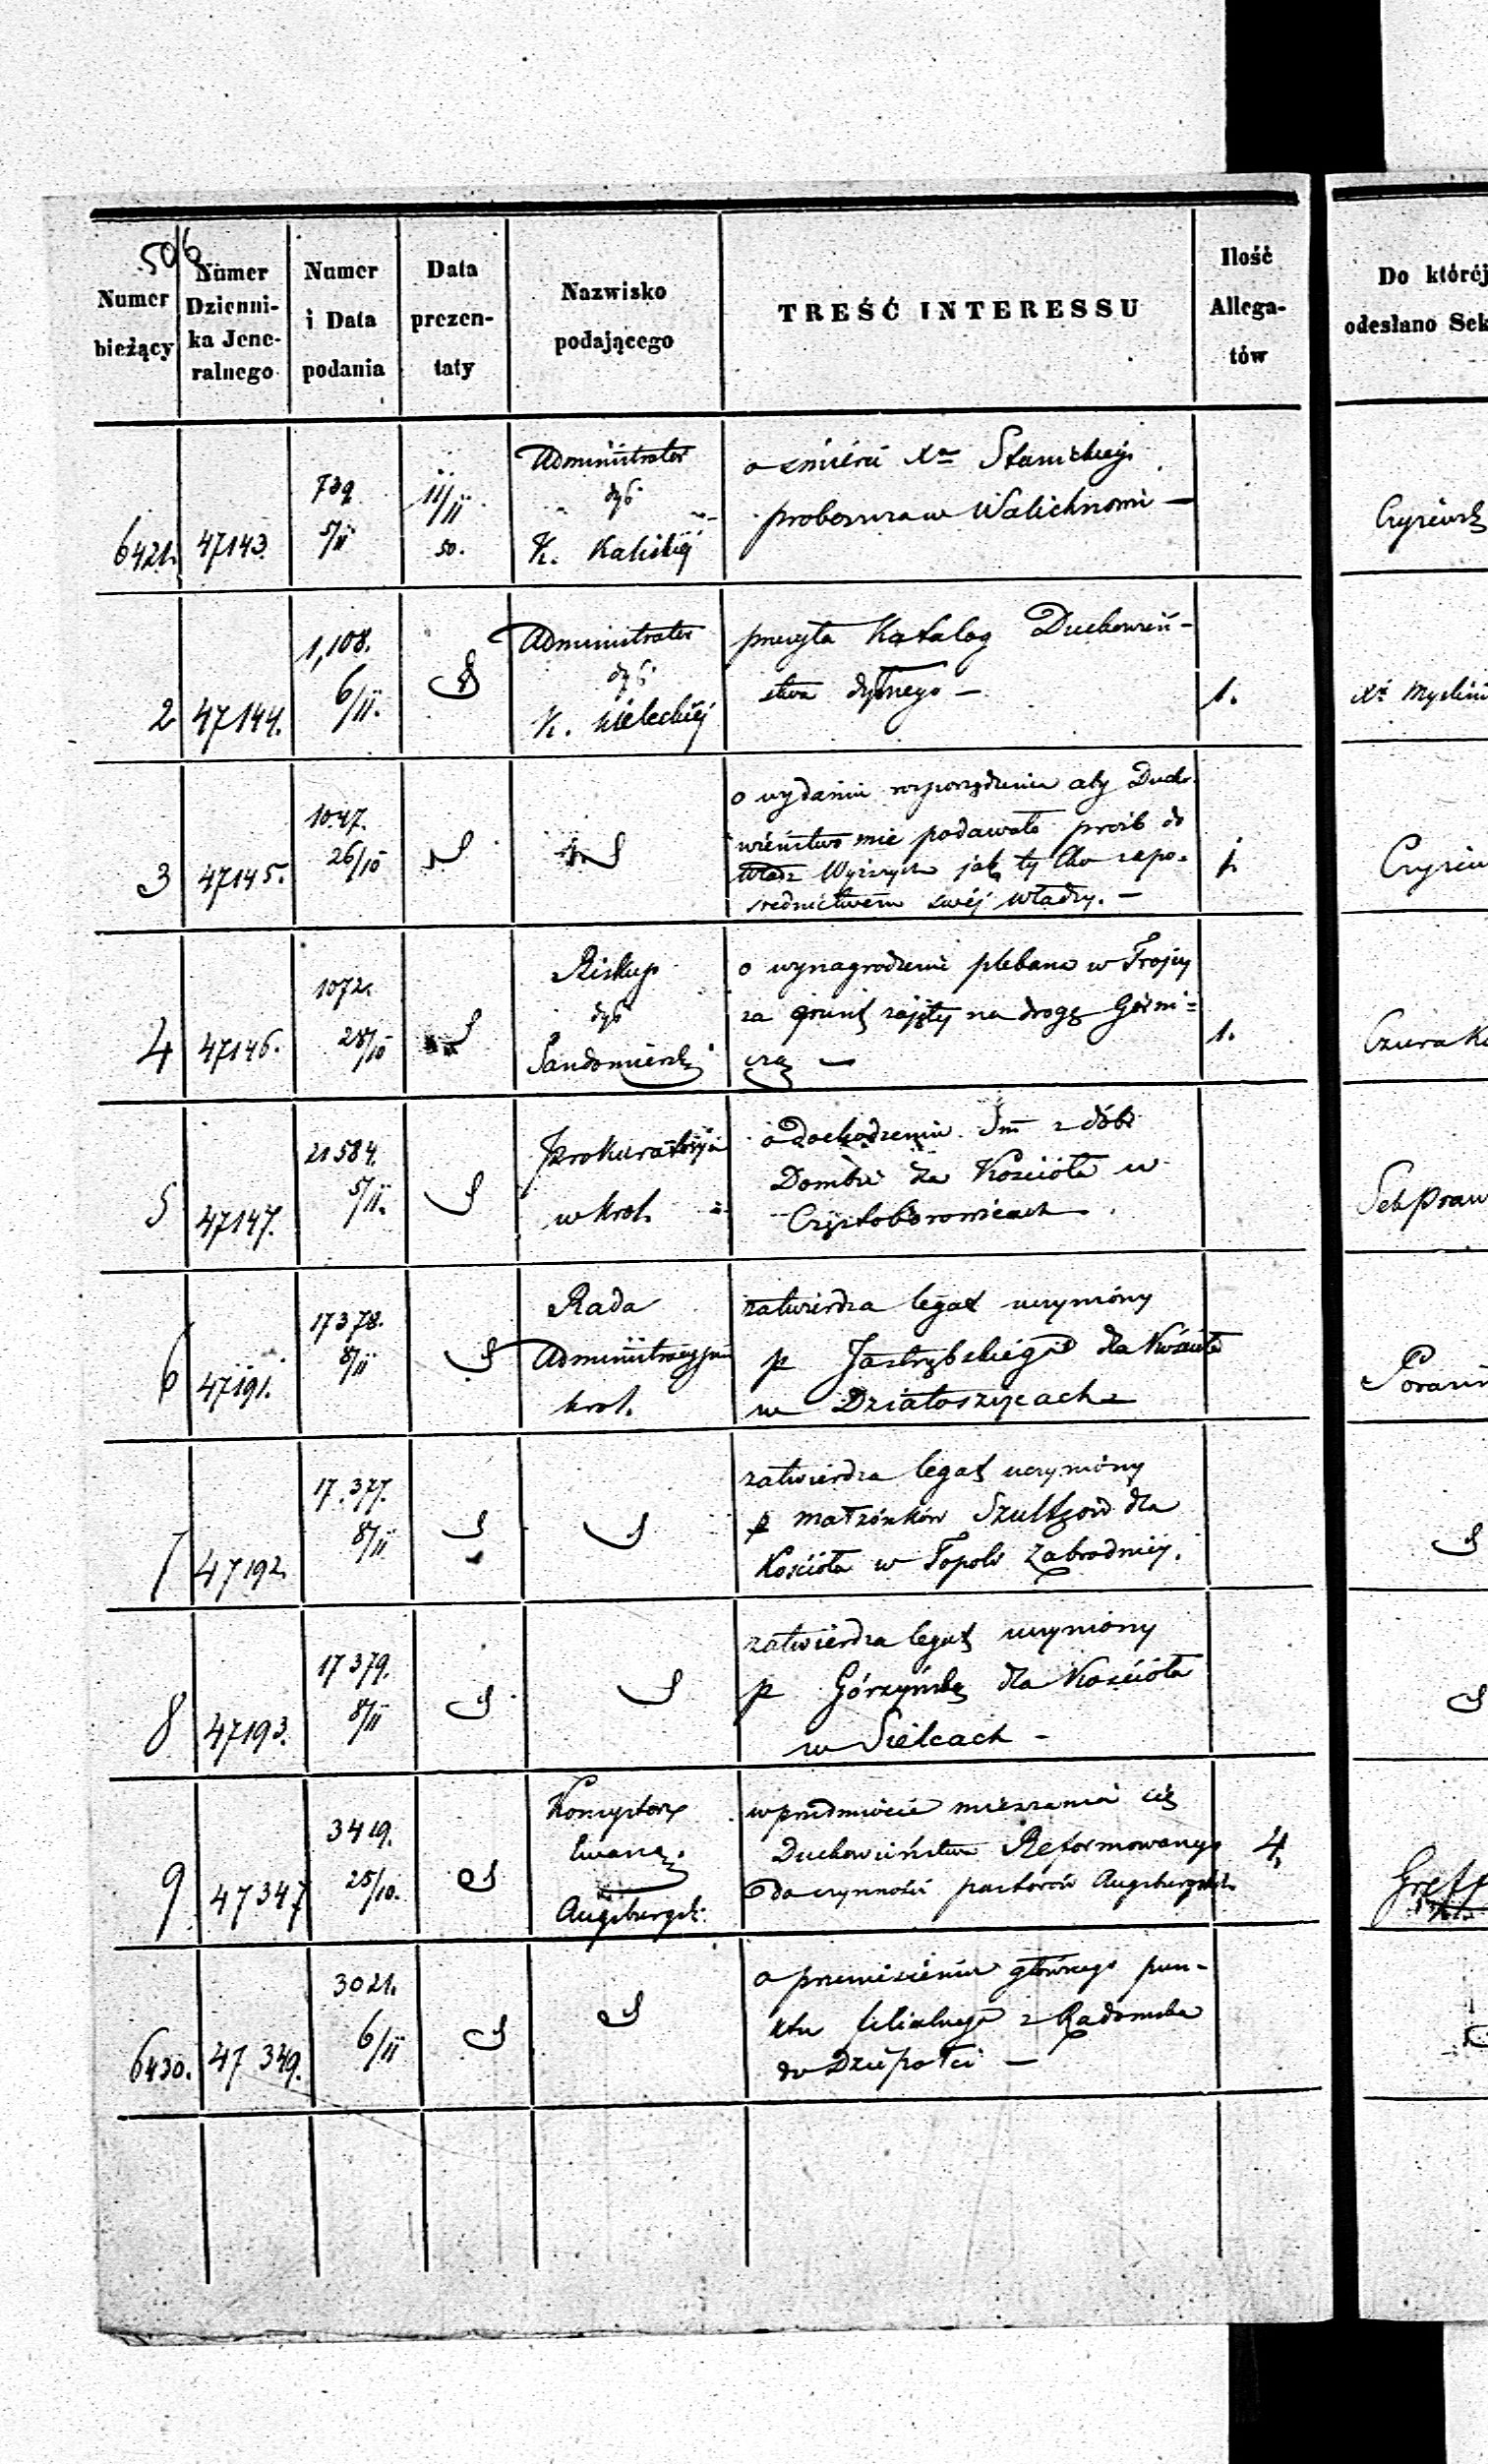 506
Numer bieżący
Numer Dzienni-
ka Jene-
ralnego
Numer i Data podania
Data prezen-
taty
Nazwisko podającego
TREŚĆ INTERESSU
Ilość Allega-
tów
Do któréj
odesłano Sek
6421. 47143. 739 5/11 11/11 50.
Administrator
dyö
K. Kaliskiéj
o śmierci Xa Stanickiego
proboszcza w Walichnowi —
2 47144. 1,108. 6/11.
Administrator
dyö
K. Kieleckiéj
przesyła Katalog Duchowień-
stwa dyłnego —
1.
Xs Myśliń
3 47145. 1047. 26/10
o wydanie rozporządzenia aby Ducho-
wieństwo nie podawało prośb do
Władz Wyższych jak tylko za po-
średnictwem swéj władzy. —
1.
4 47146. 1072. 28/10
Biskup
dyö
Sandomierski
o wynagrodzenie plebana w Trojcy
za grunt zajęty na drogę Górni-
czą —
1.
Czurak
5 47147. 21584. 5/11.
Prokuratorya
w Krol.
o dochodzeniu Sm z dóbr
Dombie dla Kościoła w
Czystoborowicach
Sekpraw
6 47191. 17378. 8/11
Rada
Administracyjna
krol.
zatwierdza legat uczyniony
p Jastrzębskiego dla Kościoła
w Działoszycach
7 47192. 17.377. 8/11
zatwierdza legat uczyniony
p małżonków Szultzów dla
Kościoła w Topoli Zabrodniéj.
8 47193. 17379. 8/11
zatwierdza legat uczyniony
p Górzyńską dla Kościoła
w Sielcach —
9 47347 3419. 25/10.
Konsystorz
Ewang.
Augsburgski
w przedmiocie mieszania się
Duchowieństwa Reformowanego
do czynności pastorów Augsburgskich
4.
6430. 47349. 3021. 6/11
o przeniesienie głównego pun-
ktu filialnego z Radomska
do Dziepółci —